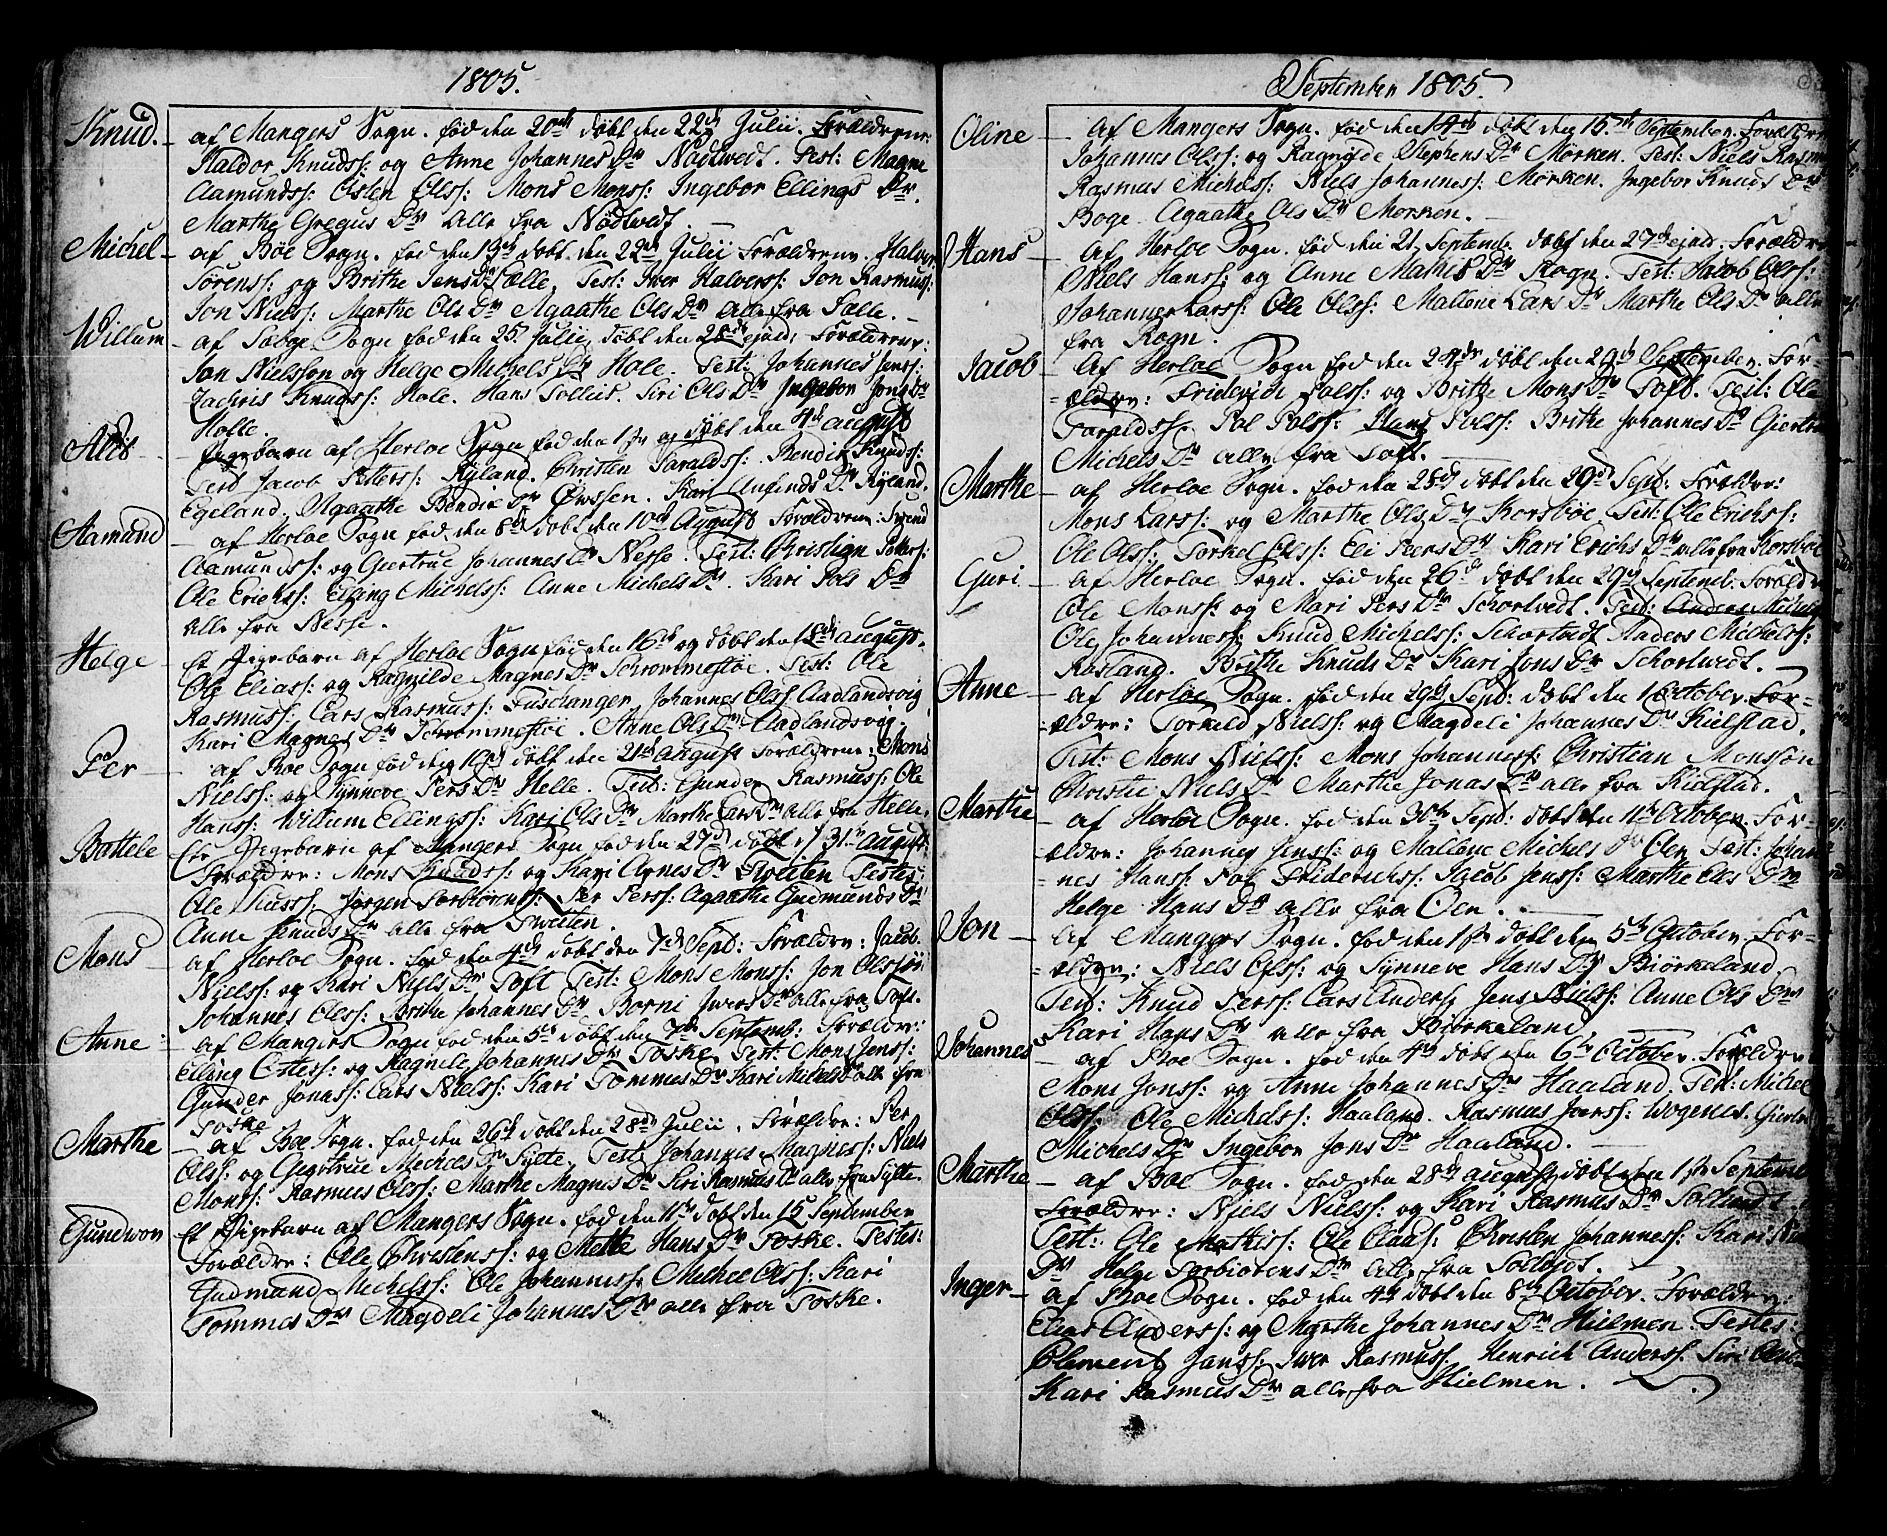 1805.
Knud. - af Mangers Sogn. fød den 20de døbt den 22de Julii. Forældrene:
Haldor Knudss: og Anne Johannes Dr Nødtvedt. Test: Magne
Aamundss: Østen Olss: Mons Monss: Ingebor Ellings Dr.
Marthe Gregus Dr alle fra Nødtvedt. -
Michel - af Bøe Sogn. fød den 19de døbt den 22de Julii Forældrene. Halver
Sørenss: og Brithe Jens Dr Sælle, Test: Iver Halverss: Jon Rasmuss:
Jon Nielss: Marthe Ols Dr Agaathe Ols Dr alle fra Sælle. -
Willum - af Sæbøe Sogn fød den 25. Julii, døbt den 28de ejusd: Forældrene:
Jon Nielsson og Helge Michels Dr Hole. Test: Johannes Jenss:
Zachris Knudss: Hole. Hans Tollius. Siri Ols Dr Ingebor Jons Dr
Holle.
Ales - Pigebarn af Herløe Sogn fød den 1ste og døbt den 4de august
Test Jacob Petterss: Ryland. Christen Haraldss: Bendix Knudss:
Egeland. Agaathe Bendix Dr Øvssen. Kari Anfinds Dr Ryland.
Aamund - af Herløe Sogn fød den 8de døbt den 10de August Forældrene: Svend
Aamundss: og Giertrue Johannes Dr Nesse. Test: Christian Petterss:
Ole Erichss: Elling Michelss: Anne Michels Dr. Kari Pols Dr
alle fra Nesse.
Helge - Et Pigebarn af Herløe Sogn fød den 16de og døbt den 18de august.
Ole Eliass: og Ragnilde Magnes Dr Schrommestøe. Test: Ole
Rasmuss: Lars Rasmuss: Fuschanger, Johannes Olss Aadlandsvig
Kari Magnes Dr Schrommestøe. Anne Ols Dr Aadlandsvig.
Per - af Bøe Sogn fød den 19de døbt den 21de August Forældrene: Mons
Nielss: og Synneve Pers Dr Helle. Test: Gunder Rasmuss: Ole
Hanss: Willum Ellingss: Kari Ols Dr Marthe Lars Dr alle fra Helle.
Battele - Ete Pigebarn af Mangers Sogn fød den 27de døbt d 31te August
Forældre: Mons Knudss: og Kari Arnes Dr Tveiten Testes:
Ole Knuss: Jørgen Torbiørenss: Per Perss: Agaathe Gudmunds Dr
Anne Knuds Dr alle fra Tveiten.
Mons - af Herløe Sogn. fød den 4de døbt den 7de Sept: Forældre: Jacob
Nielss: og Kari Niels Dr Toft Test: Mons Monss: Jon Olssøn
Johannes Olss: Brithe Johannes Dr. Borni Ivers Dr alle fra Toft.
Anne - af Mangers Sogn fød den 5te døbt den 7de Septemb: Forældre:
Elling Ottess: og Ragneli Johannes Dr Toske Test: Mons Jenss:
Gunder Jonass: Lars Nielss: Kari Tommes Dr Kari Michels Dr alle fra
Toske
Marthe - af Bøe Sogn. fød den 26de døbt den 28de Julii, Forældre: Per
Olss: og Giertrue Michels Dr Sylte. Test Johannes Magness: Niels
Monss: Rasmus Olss: Marthe Magnes Dr Siri Rasmus Dr alle fra Sylte.
Gundwor Et Pigebarn af Mangers Sogn. fød den 11te døbt den 15 September
Forældre: Ole Christenss: og Mette Hans Dr Toske. Testes:
Gudmand Michelss: Ole Johanness: Michel Olss: Kari
Tommes Dr Magdeli Johannes Dr alle fra Toske.
September 1805.
Oline - af Mangers Sogn. fød den 14de døbt den 15de September. Forældre
Johannes Olss: og Ragnilde Stephens Dr Mørken. Test: Niels Rasmus
Rasmus Michelss: Niels Johanness: Mørken. Ingebor Knuds Dr
Boge. Agaathe Ols Dr Mørken.
Hans - af Herløe Sogn. fød den 21 Septemb: døbt den 27de ejusd: Forældre
Niels Hanss: og Anne Mathis Dr Rogn. Test: Jacob Olss:
Johannes Larss: Ole Olss: Mallone Lars Dr Marthe Ols Dr alle
fra Rogn.
Jacob - af Herløe Sogn fød den 24de døbt den 29de September. For-
ældre: Friderich Polss: og Brithe Mons Dr Toft. Test: Ole
Haraldss. Pol Polss: Hans Polss: Brithe Johannes Dr Giertru
Michels Dr alle fra Toft.
Marthe - af Herløe Sogn. fød den 28de døbt den 29de Sept: Forældre:
Mons Larss: og Marthe Ols Dr Korsbøe Test: Ole Erichss:
Ole Olss: Torkel Olss: Eli Pers Dr Kari Erichs Dr alle fra Korsbøe
Guri - af Herløe Sogn. fød den 26de døbt den 29de Septemb: Forældre
Ole Monss: og Mari Pers Dr Schortvedt. Test: Anders Michels
Ole Johanness: Knud Michelss: Schortvedt Anders Michelss:
Rosland. Brithe Knuds Dr Kari Jons Dr Schortvedt. -
Anne - af Herløe Sogn. fød den 29de Sept: døbt den 1 October. For-
ældre: Torkild Nielss: og Magdeli Johannes Dr Kielstad.
Test: Mons Nielss: Mons Johanness: Christian Monssøn
Christie Niels Dr Marthe Jonas Dr alle fra Kielstad.
Marthe - af Herløe Sogn. fød den 30te Sept: døbt den 1te October. For-
ældre: Johannes Jenss: og Mallone Michels Dr Øen Test: Johan-
nes Hanss: Pol Friderichss: Jacob Jenss: Marthe Ols Dr
Helge Hans Dr alle fra Øen.
Jon - af Mangers Sogn. fød den 1ste døbt den 5te October. For-
ældre: Niels Olss: og Synneve Hans Dr Biørkeland
Test: Knud Perss: Lars Anderss Jens Nielss: Anne Ols Dr
Kari Hans Dr alle fra Biørkeland.
Johannes - af Bøe Sogn. fød den 4de døbt den 6te October. Forældre
Mons Jonss: og Anne Johannes Dr Haaland. Test: Michel
Olss: Ole Michelss: Haaland. Rasmus Iverss: Wogenes. Giertru
Michels Dr Ingebor Jons Dr Haaland.
Marthe - af Bøe Sogn. fød den 28de august døbt den 1ste Septemb
Forældre: Niels Nielss: og Kari Rasmus Dr Solbeds
Test: Ole Mathiss: Ole Olass: Christen Johanness: Kari
Dr Helge Torbiørens Dr alle fra Solbeds.
Inger - af Bøe Sogn. fød den 4de døbt den 8de October. Forældre:
Elias Anderss: og Marthe Johannes Dr Hielmen Testes:
Clement Janss: Iver Rasmuss. Henrich Anderss. Siri
Kari Rasmus Dr alle fra Hielmen.